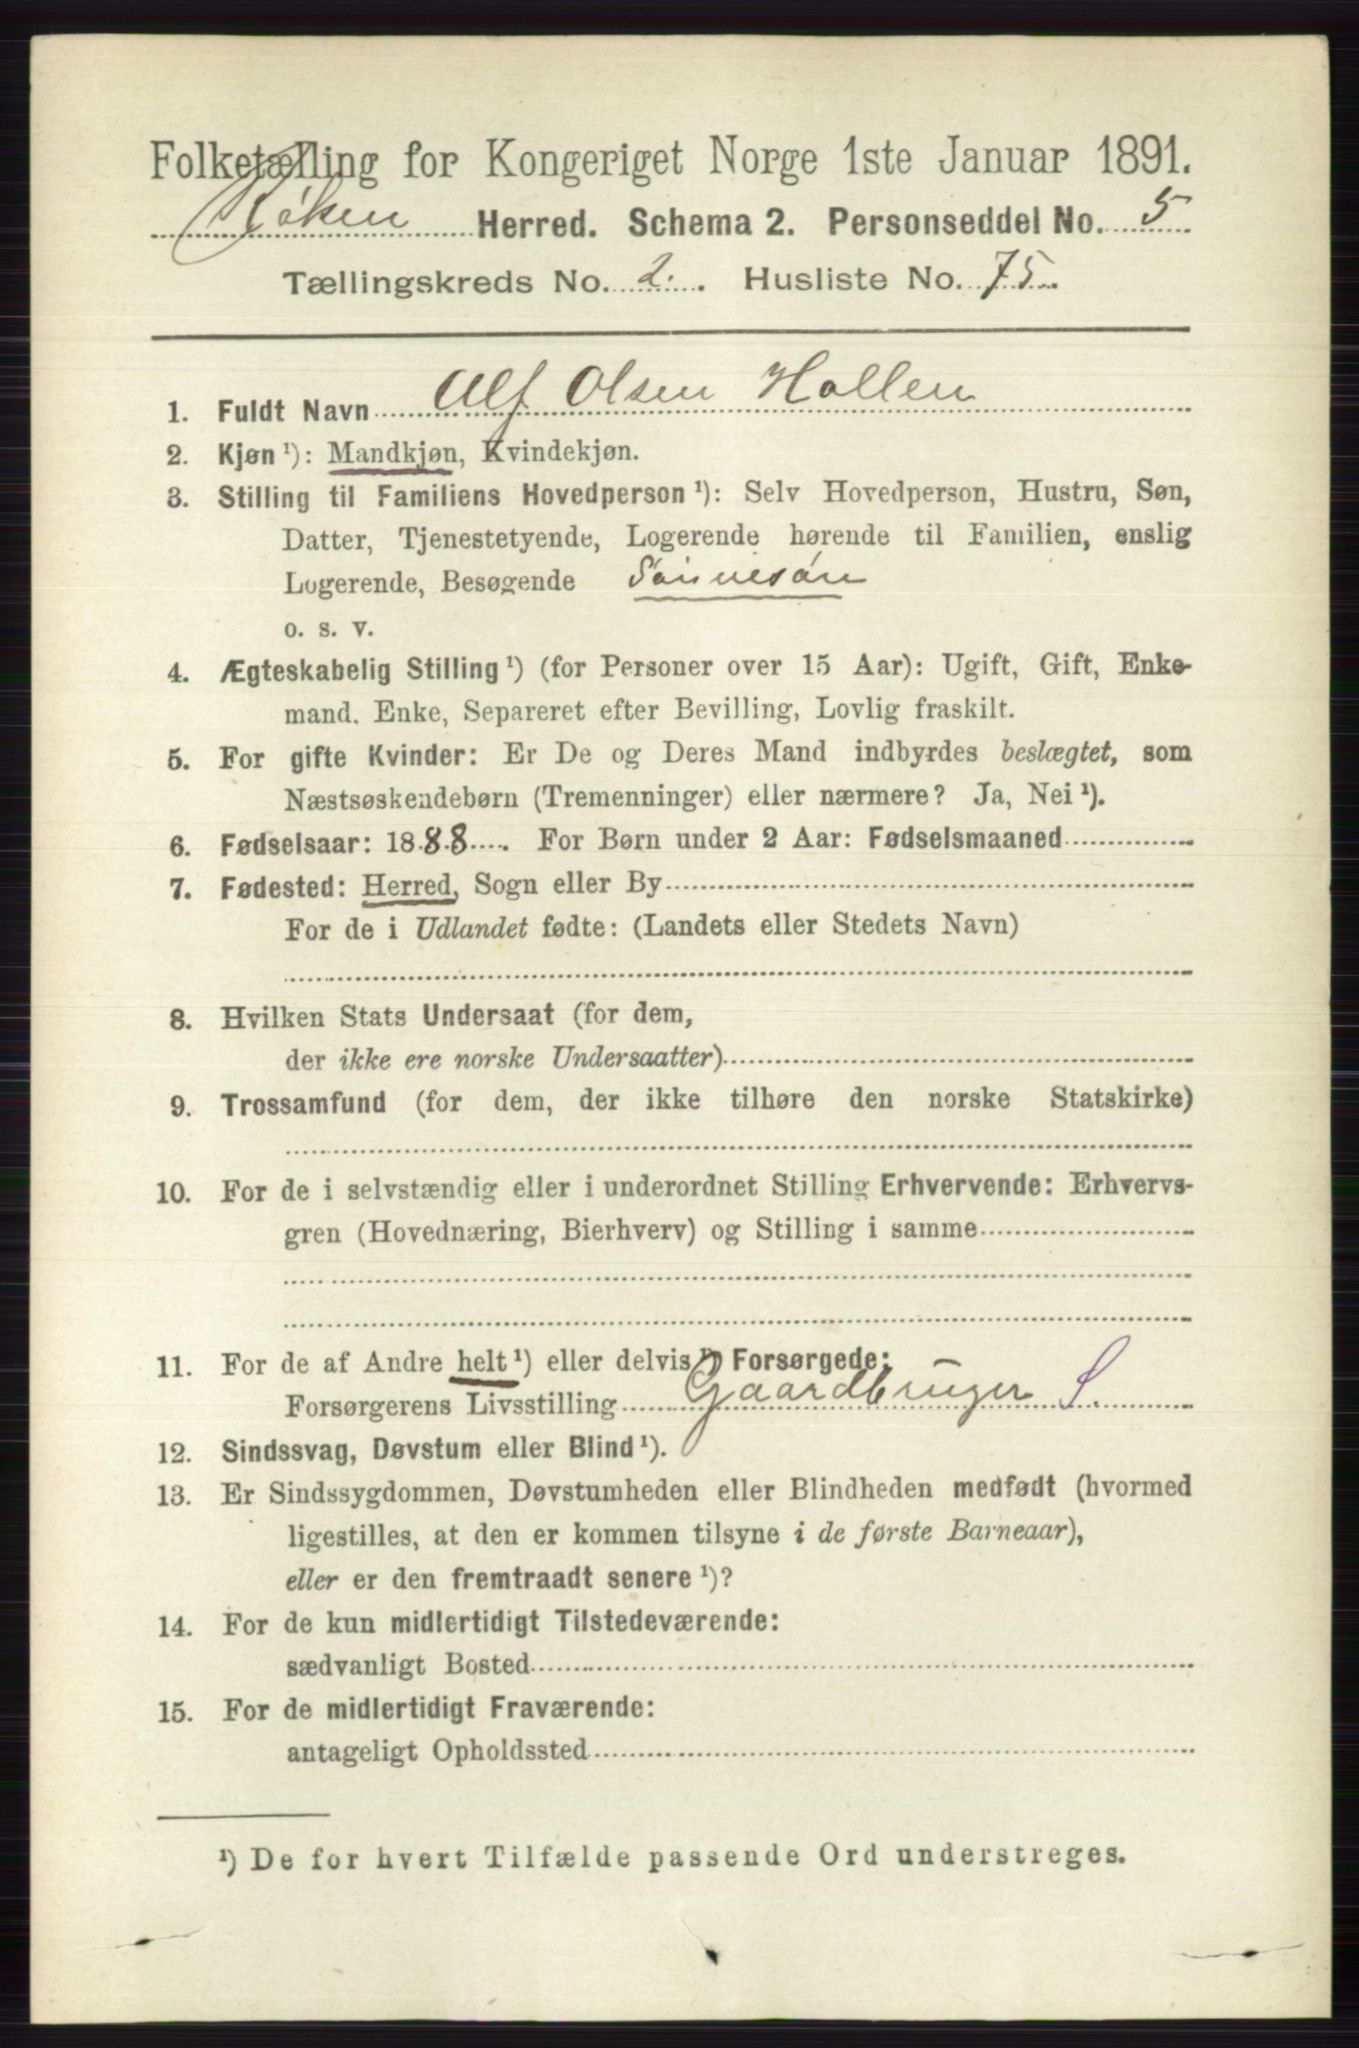 Folketælling for Kongeriget Norge 1ste Januar 1891.
Røken Herred. Schema 2. Personseddel No. 5
Tællingskreds No. 2. Husliste No. 75.
1. Fuldt Navn Alf Olsen Hallen
2. Kjøn ¹): Mandkjøn, Kvindekjøn.
3. Stilling til Familiens Hovedperson ¹): Selv Hovedperson, Hustru, Søn,
Datter, Tjenestetyende, Logerende hørende til Familien, enslig
Logerende, Besøgende Sønnesøn
o. s. v.
4. Ægteskabelig Stilling ¹) (for Personer over 15 Aar): Ugift, Gift, Enke-
mand, Enke, Separeret efter Bevilling, Lovlig fraskilt.
5. For gifte Kvinder: Er De og Deres Mand indbyrdes beslægtet, som
Næstsøskendebørn (Tremenninger) eller nærmere? Ja, Nei ¹).
6. Fødselsaar: 1888. For Børn under 2 Aar: Fødselsmaaned
7. Fødested: Herred, Sogn eller By
For de i Udlandet fødte: (Landets eller Stedets Navn)
8. Hvilken Stats Undersaat (for dem,
der ikke ere norske Undersaatter)
9. Trossamfund (for dem, der ikke tilhøre den norske Statskirke)
10. For de i selvstændig eller i underordnet Stilling Erhvervende: Erhvervs-
gren (Hovednæring, Bierhverv) og Stilling i samme
11. For de af Andre helt ¹) eller delvis ¹) Forsørgede:
Forsørgerens Livsstilling Gaardbruger S.
12. Sindssvag, Døvstum eller Blind ¹).
13. Er Sindssygdommen, Døvstumheden eller Blindheden medfødt (hvormed
ligestilles, at den er kommen tilsyne i de første Barneaar),
eller er den fremtraadt senere ¹)?
14. For de kun midlertidigt Tilstedeværende:
sædvanligt Bosted
15. For de midlertidigt Fraværende:
antageligt Opholdssted
¹) De for hvert Tilfælde passende Ord understreges.